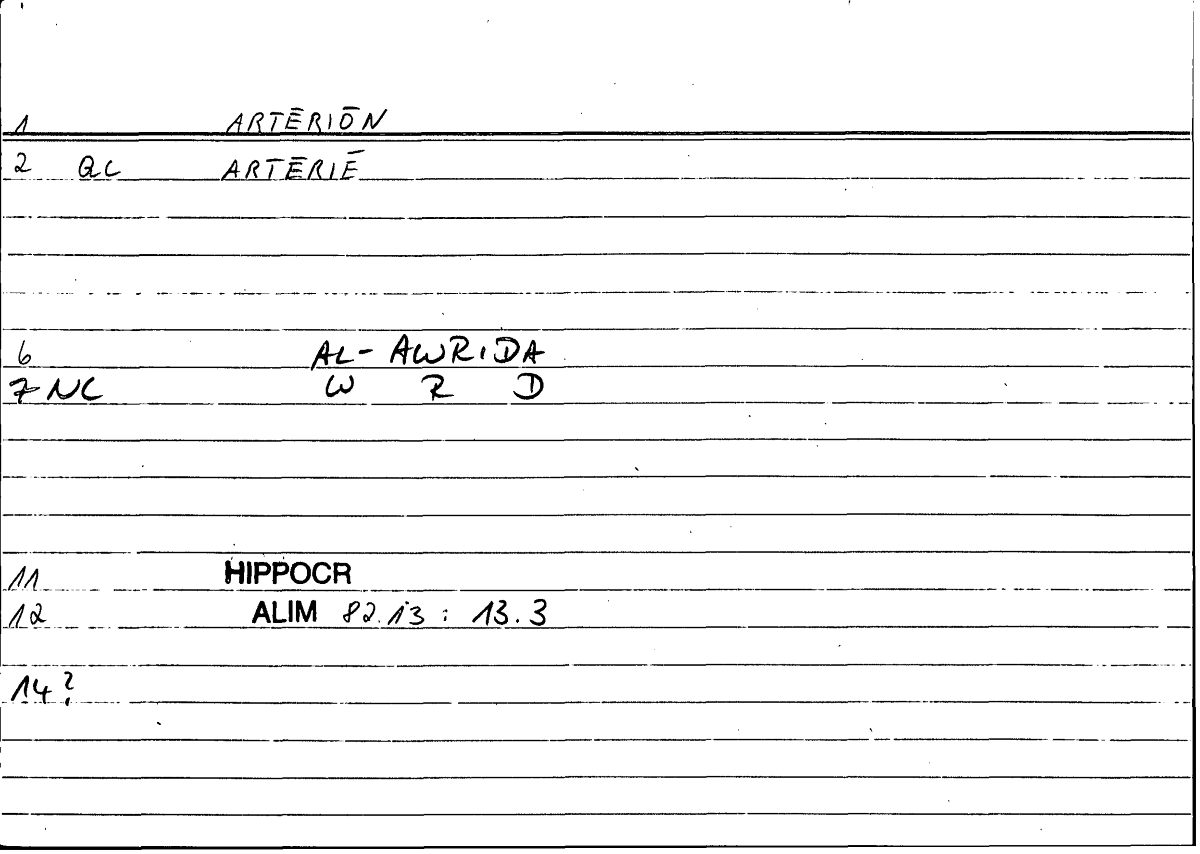 1 ARTĒRIŌN
2 QC ARTĒRIĒ
6 AL-AWRIDA
7 NC W R D
11 HIPPOCR
12 ALIM 82.13 : 13.3
14?